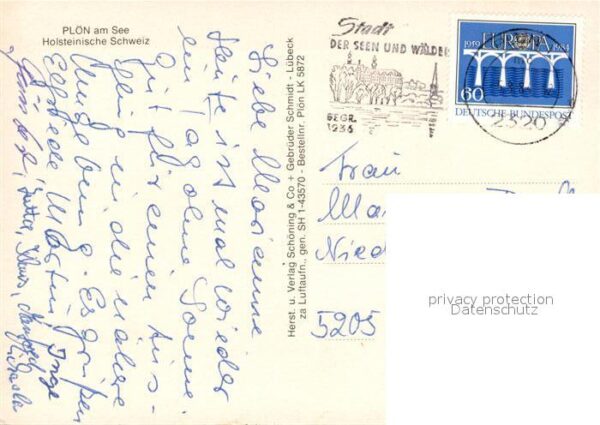 PLÖN am See
Holsteinische Schweiz
Liebe Marianne
Heute ist mal wieder
ein Tag ohne Sonne.
Gut für einen Aus-
flug in die nähere
Umgebung. Es grüßen
Martin, Inge
Jutta, Klaus,
Herst. u. Verlag Schöning & Co + Gebrüder Schmidt - Lübeck
za Luftaufn., gen. SH 1-43570 - Bestellnr. Plön LK 5872
Stadt
DER SEEN UND WÄLDER
BEGR.
1236
2320
EUROPA
1959 1984
60
DEUTSCHE BUNDESPOST
Frau
Ma
Nied
5205
privacy protection
Datenschutz